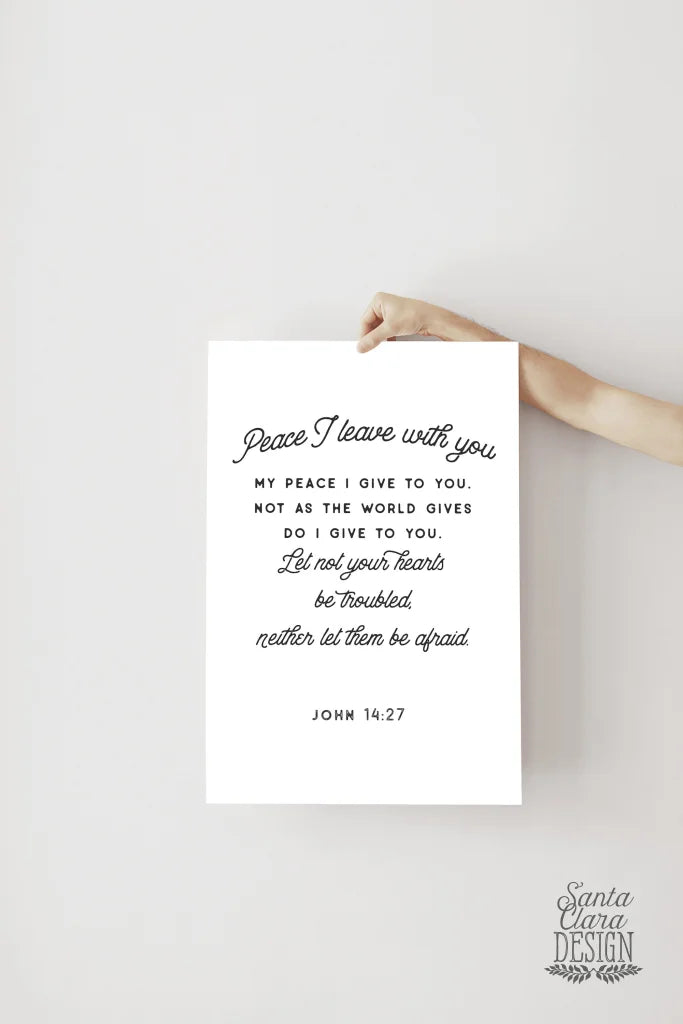 Peace I leave with you
MY PEACE I GIVE TO YOU.
NOT AS THE WORLD GIVES
DO I GIVE TO YOU.
Let not your hearts
be troubled,
neither let them be afraid.
JOHN 14:27
Santa
Clara
DESIGN